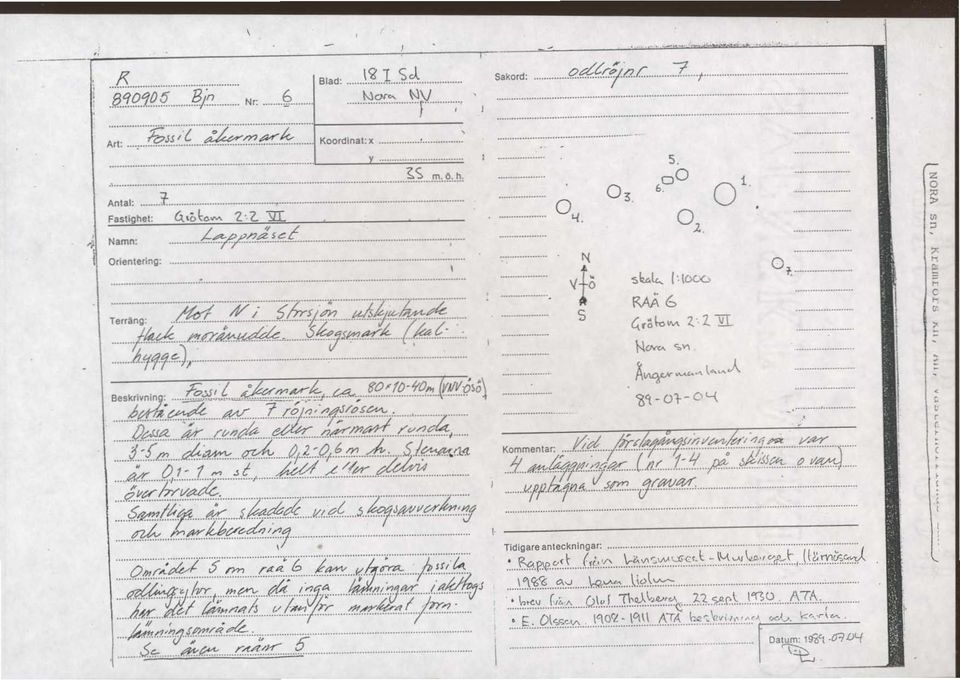 R
890905 Bjn Nr: 6
Blad: 18 I 5d
Nora NV
Art: Fossil åkermark
Koordinat: x
y
35 m. ö. h.
Antal: 7
Fastighet: Grötom 2:2 VI
Namn: Lappnäset
Orientering:
Terräng: Mot N i Storsjön utskjutande
flack moränudde. Skogsmark (kal-
hygge),
Beskrivning: Fossil åkermark, ca 80×10-40m (VNV-ÖSÖ)
bestående av 7 röjningsrösen.
Dessa är runda eller närmast runda,
3-5 m diam och 0,2-0,6 m h. Stenarna
är 0,1-1 m st, helt eller delvis
övertorvade.
Samtliga är skadade vid skogsavverkning
och markberedning
Området S om raä 6 kan utgöra fossila
odlingsytor, men då inga lämningar iakttogs
har det lämnats utanför markerat forn-
lämningsområde.
Se även raänr 5
Sakord: odlröjnr 7,
5.
6.
3.
1.
4.
2.
7.
N
V Ö
S
skala 1:1000
RAÄ 6
Grötom 2:2 VI
Nora sn.
Ångermanland
89-07-04
Kommentar: Vid förstagångsinventeringen var
4 anläggningar (nr 1-4 på skissen ovan)
upptagna som gravar.
Tidigare anteckningar:
• Rapport från Länsmuseet-Murberget, Härnösand
1988 av
• brev från Olof Thelberg 22 sept 1930, ATA.
• E. Olsson. 1902-1911 ATA beskrivning och karta.
Datum: 1989-07-04
NORA sn, Kramfors kn,